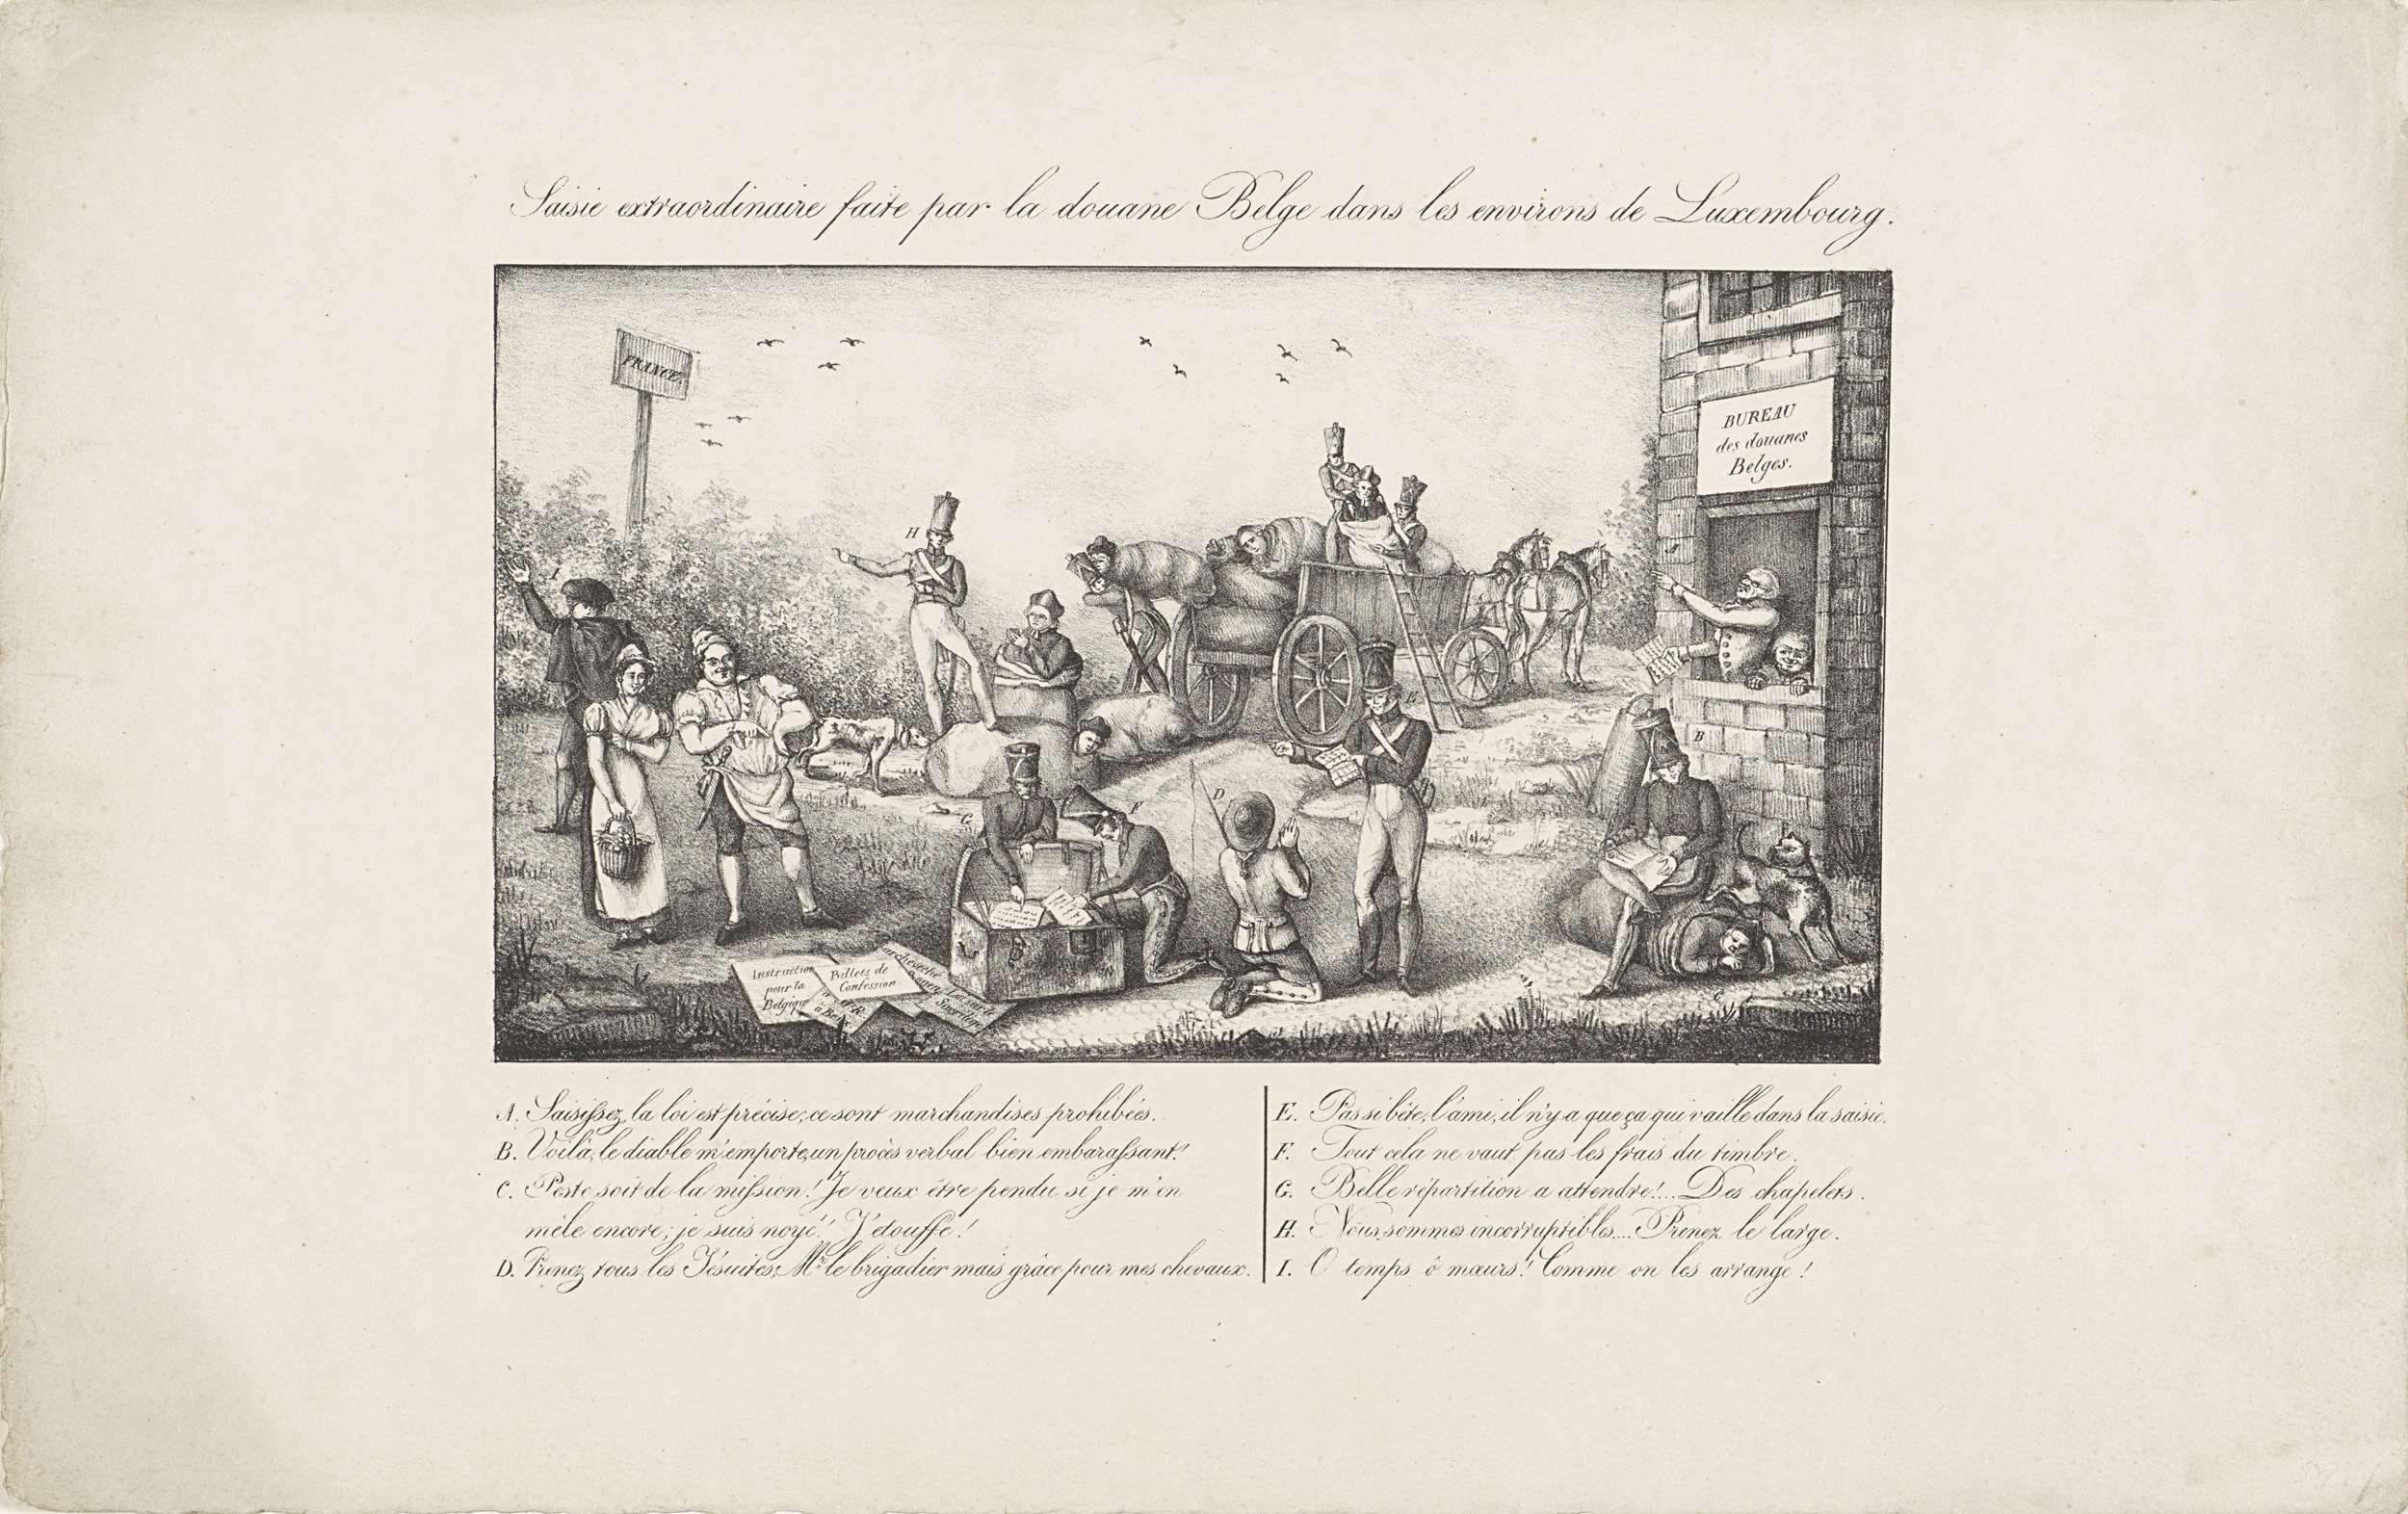 Saisie extraordinaire faite par la douane Belge dans les environs de Luxembourg.
FRANCE.
BUREAU
des douanes
Belges.
A
H
I
E
B
D
G
F
C
Instruction
pour la
Belgique
Billets de
Confession
archevêché
Loi sur le
Sacrilège
A. Saisissez, la loi est précise; ce sont marchandises prohibées.
B. Voilà, le diable m'emporte, un procès verbal bien embarassant!
C. Peste soit de la mission! Je veux être pendu si je m'en
mêle encore; je suis noyé! J'étouffe!
D. Prenez tous les Jésuites, Mr. le brigadier mais grâce pour mes chevaux.
E. Pas si bête, l'ami, il n'y a que ça qui vaille dans la saisie.
F. Tout cela ne vaut pas les frais du timbre.
G. Belle répartition a attendre!... Des chapelets.
H. Nous sommes incorruptibles.... Prenez le large.
I. O temps ô mœurs! Comme on les arrange!